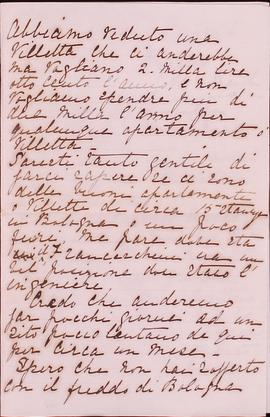 Abbiamo veduto una
Villetta che ci anderebbe
ma vogliano 2. mila lire
otto cento l'anno, e non
vogliamo spendere piu di
due mille l'anno per
qualunque apartamento o
Villetta -
Saresti tanto gentile di
farci sapere se ci sono
delle buoni apartamente
o Villette di circa
in Bologna o un poco
fuori. Me pare dove sta
Franceschini era un
posizione dove stato l'
ingeniere
Credo che anderemo
far pocchi giorni ad un
sito poco lontano de qui
per circa un mese -
Spero che non hai sofferto
con il freddo di Bologna